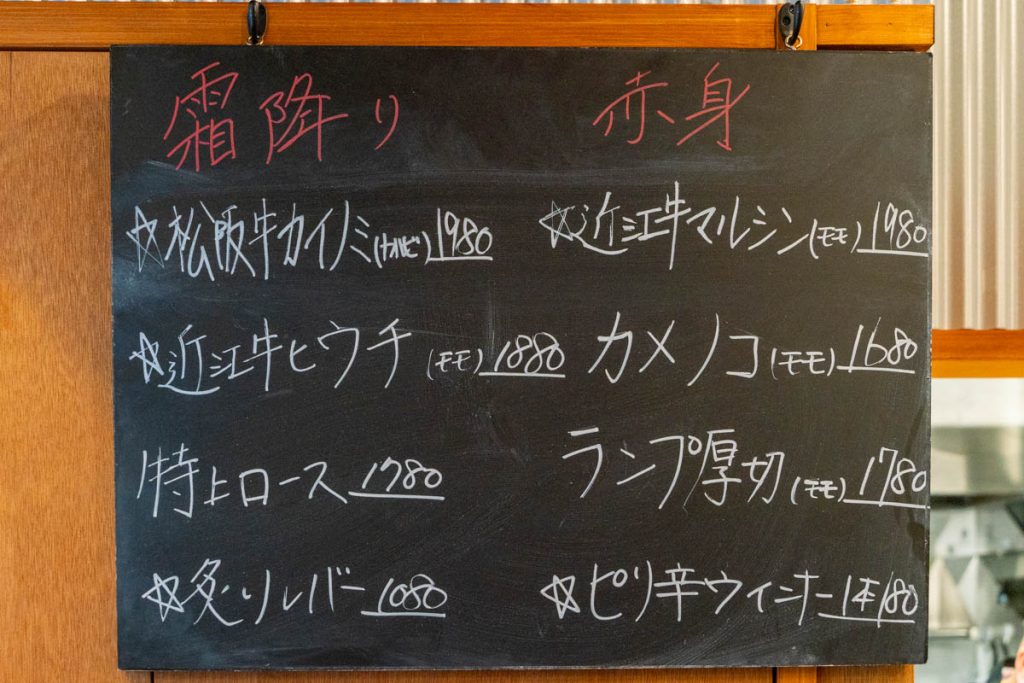 霜降り
☆松阪牛カイノミ(カルビ)1980
☆近江牛ヒウチ(モモ)1880
特上ロース1780
☆炙りレバー1080
赤身
☆近江牛マルシン(モモ)1980
カメノコ(モモ)1680
ランプ厚切(モモ)1780
☆ピリ辛ウィンナー1本180